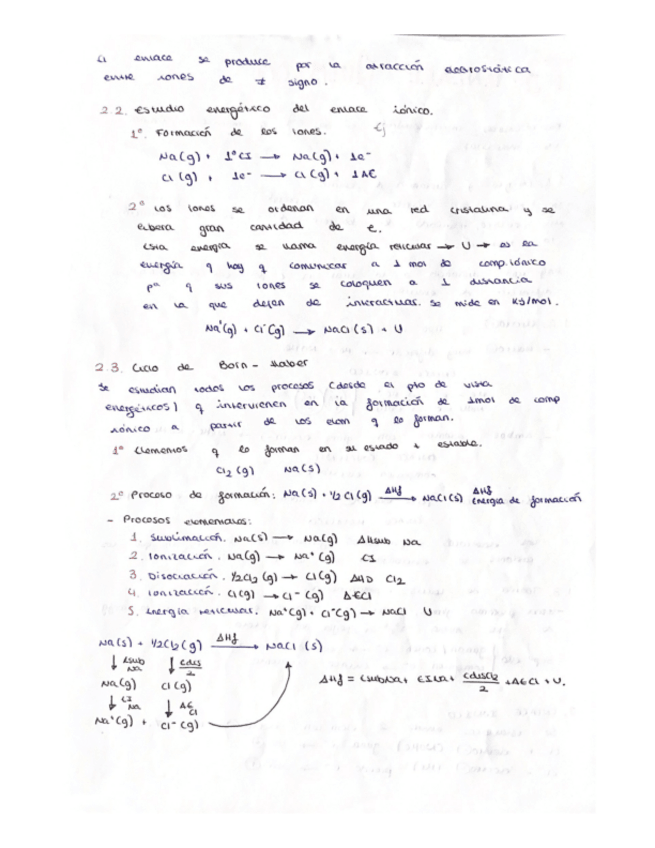 El enlace se produce por la atracción electrostática
entre iones de ≠ signo.
2.2. Estudio energético del enlace iónico.
1º Formación de los iones. Ej
Na(g) + 1ºEI → Na(g) + 1e⁻
Cl(g) + 1e⁻ → Cl(g) + 1AE
2º Los iones se ordenan en una red cristalina y se
libera gran cantidad de E.
Esta energía se llama energía reticular → U → es la
energía q hay q comunicar a 1 mol de comp. iónico
pª q sus iones se coloquen a 1 distancia
en la que dejen de interactuar. Se mide en KJ/mol.
Na⁺(g) + Cl⁻(g) → NaCl(s) + U
2.3. Ciclo de Born-Haber
Se estudian todos los procesos (desde el pto de vista
energéticos) q intervienen en la formación de 1mol de comp
iónico a partir de los elem q lo forman.
1º Elementos q lo forman en su estado + estable.
Cl₂(g) Na(s)
2º Proceso de formación: Na(s) + 1/2 Cl(g) ΔHf → NaCl(s) ΔHf Energía de formación
- Procesos elementales:
1. Sublimación. Na(s) → Na(g) ΔHsub Na
2. Ionización. Na(g) → Na⁺(g) EI
3. Disociación. 1/2Cl₂(g) → Cl(g) ΔHD Cl₂
4. Ionización. Cl(g) → Cl⁻(g) ΔECl
5. Energía reticular. Na⁺(g) + Cl⁻(g) → NaCl U
Na(s) + 1/2Cl₂(g) ΔHf → NaCl(s)
↓ Esub Na ↓ Edis/2
Na(g) Cl(g) ΔHf = EsubNa + EINa + EdisCl₂/2 + AECl + U.
↓ EI Na ↓ AE Cl
Na⁺(g) + Cl⁻(g)